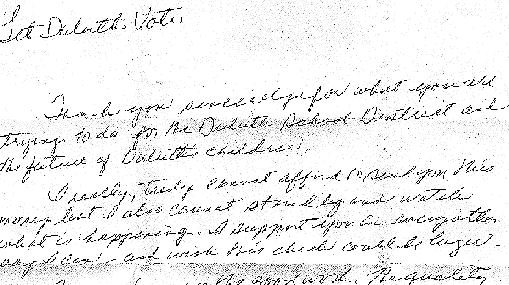 Let Duluth Vote,
Thank you so much for what you are
trying to do for the Duluth School District and
the future of Duluth's children.
I really, truly cannot afford to send you this
money but I also cannot stand by and watch
what is happening. I support you in everyway
and wish this check could be larger.